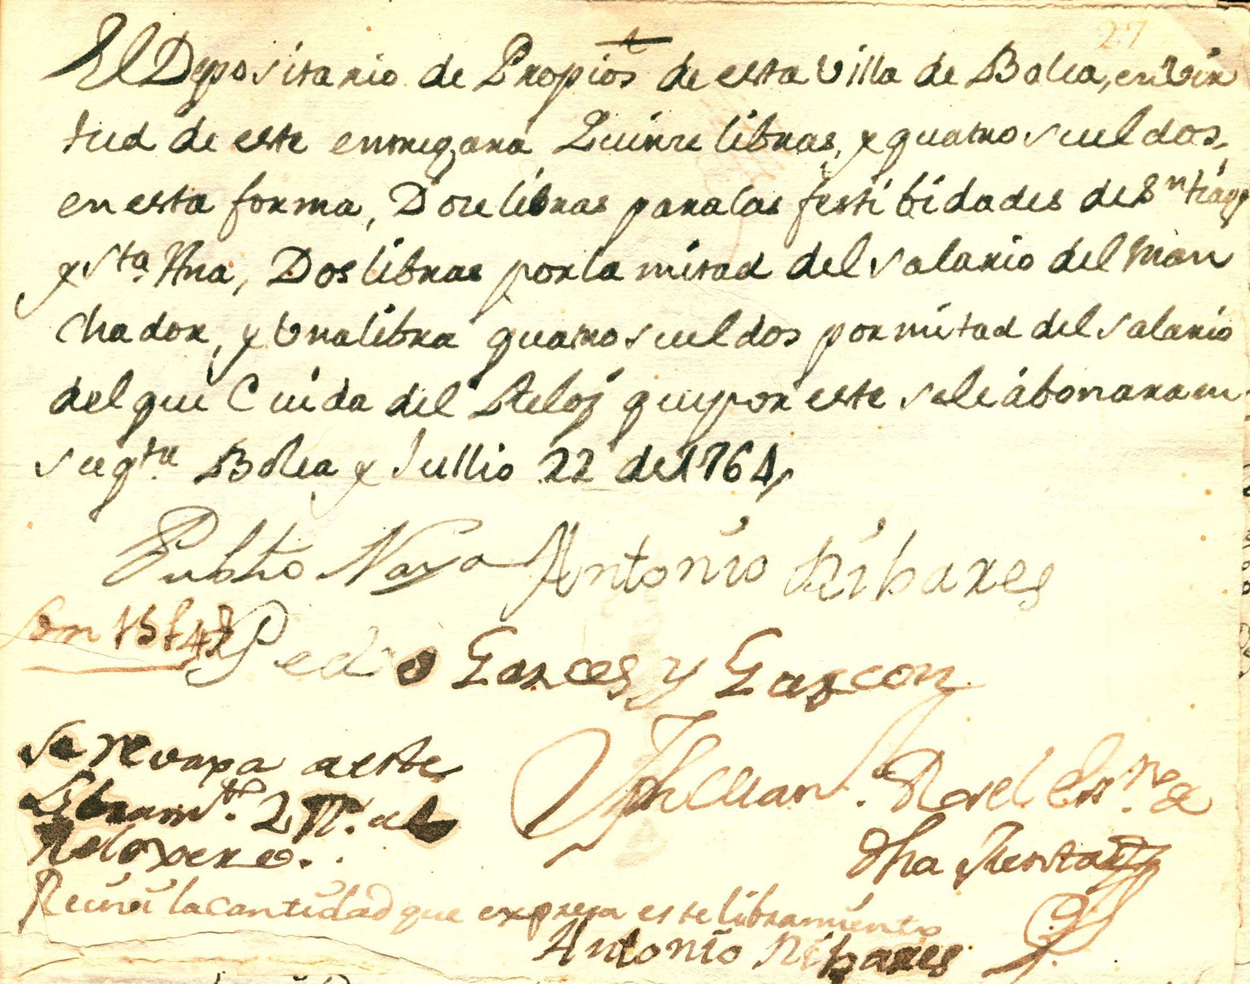 27
El Depositario de Propios de esta Villa de Bolea, en Vir
tud de este entregara Quinze libras, y quatro sueldos,
en esta forma, Doze libras para las festibidades de Sn tiago
y Sta Ana, Dos libras por la mitad del salario del Man
chador, y Una libra quatro sueldos por mitad del salario
del que Cuida del Reloj que por este se le abonara en
su qta Bolea y Jullio 22 de 1764
Antonio Ribares
Son 15 ℓ 4 s
Pedro Garces y Gascon
Se revaxa a este
Libramto. 2 al
Reloxero.
Jullian
dha
Reciui la cantidad que expresa este libramiento
Antonio Ribares